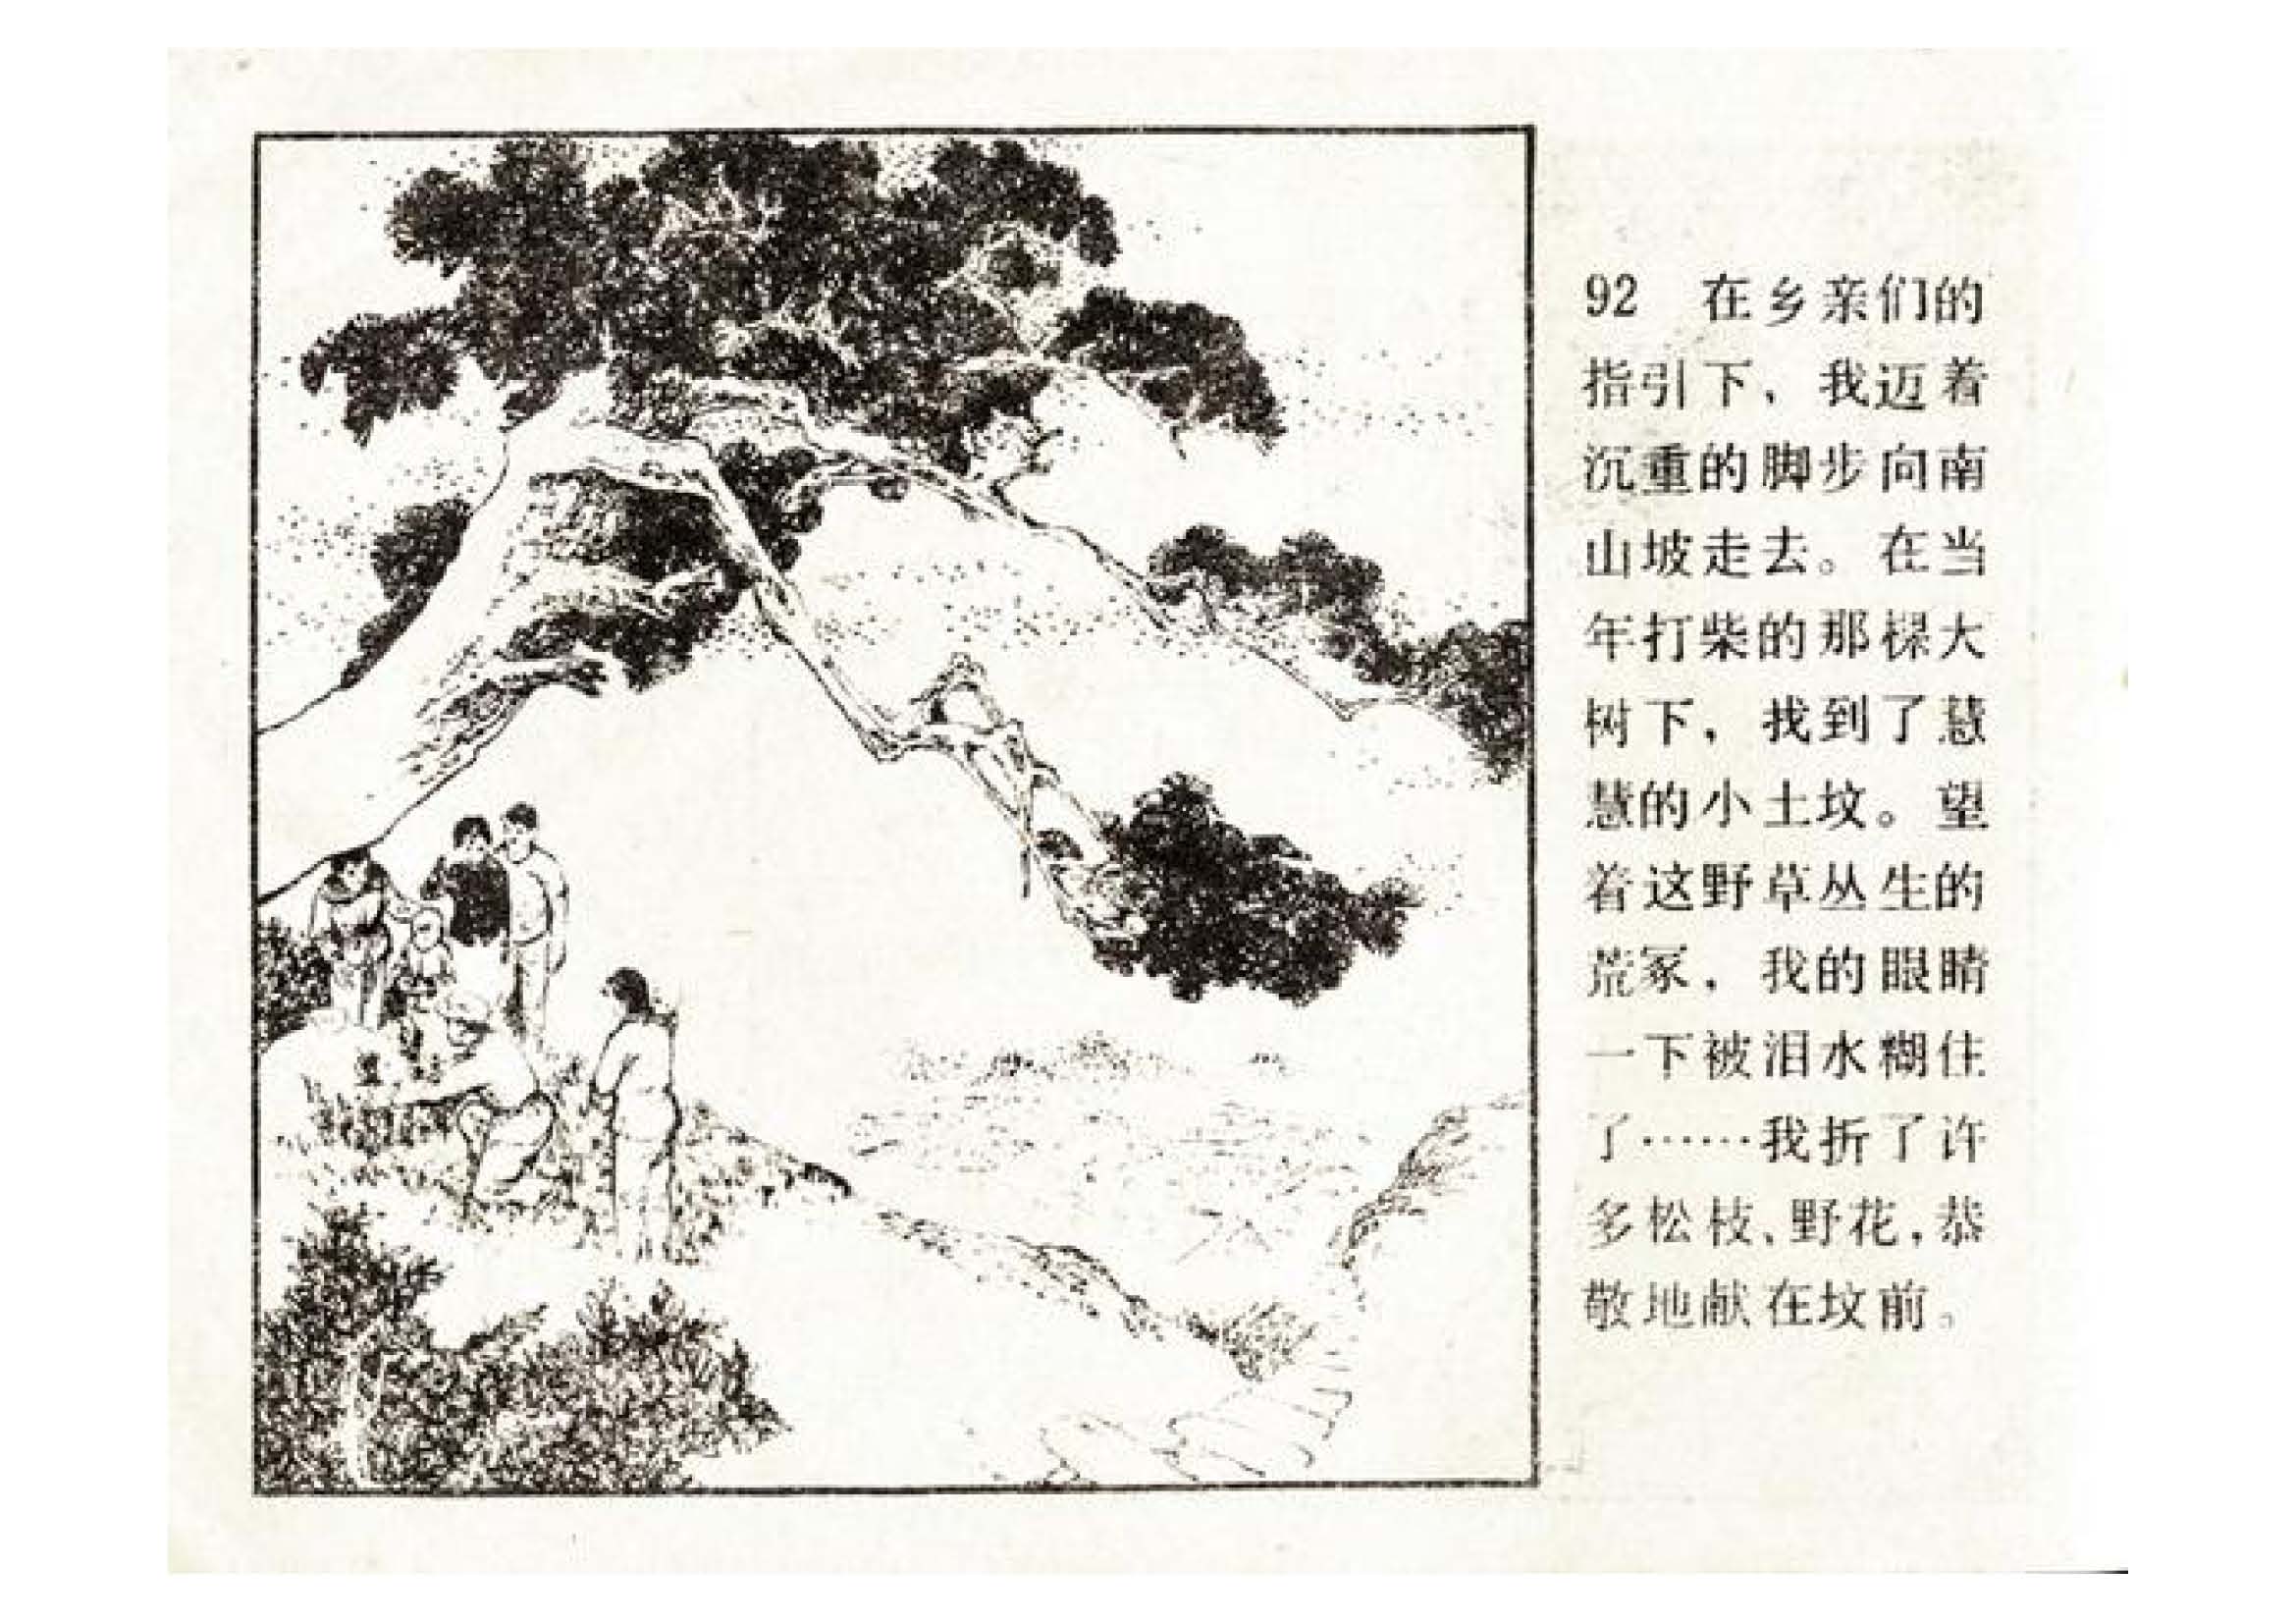 92 在乡亲们的
指引下，我迈着
沉重的脚步向南
山坡走去。在当
年打柴的那棵大
树下，找到了慧
慧的小土坟。望
着这野草丛生的
荒冢，我的眼睛
一下被泪水糊住
了……我折了许
多松枝、野花，恭
敬地献在坟前。